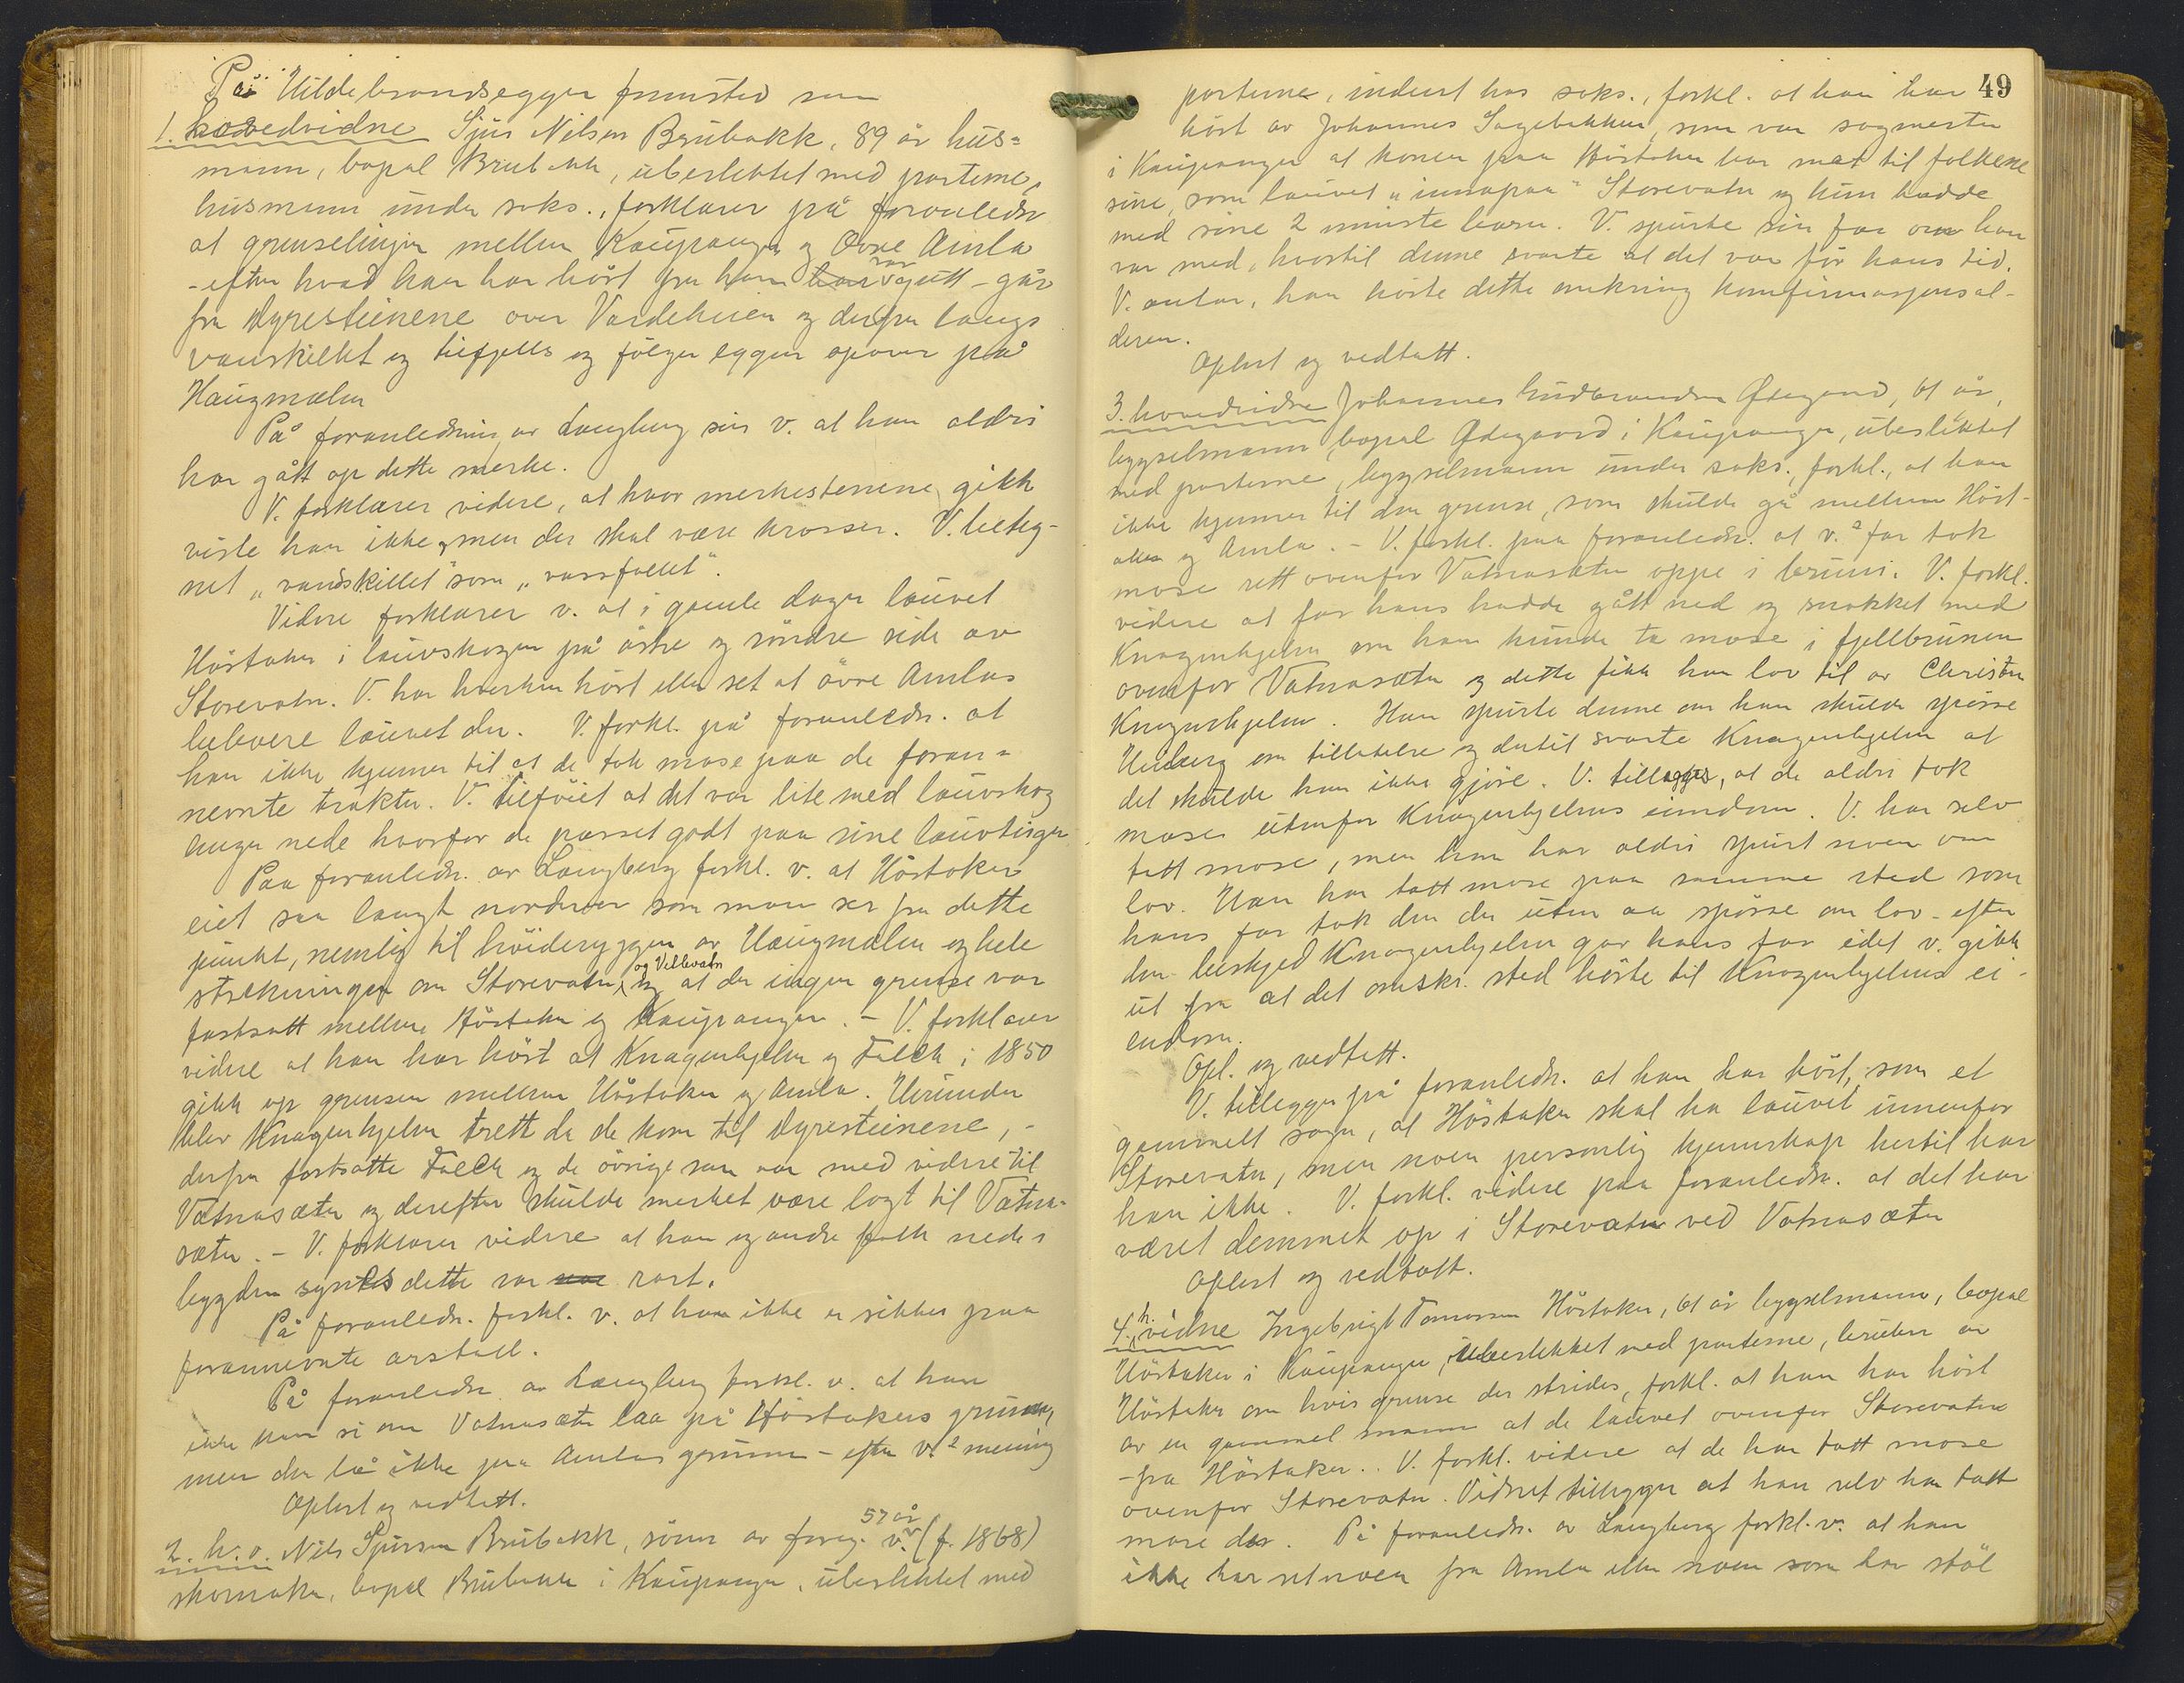 På Hildebrandseggen fremsted som
1. hovedvidne Sjur Nilsen Brubakk, 89 år hus=
mann, bopæl Brubakk, ubeslektet med parterne,
husmann under saks., forklarer på foranledn.
at grenselinjen mellem Kaupanger og Øvre Amla
- efter hvad han har hört fra han var gutt - går
fra Dyresteinene over Vardeheien og derfra langs
vanskillet og tilfjells og fölger eggen opover på
Haugmælen
På foranledning av Langberg sier v. at han aldri
har gått op dette merke.
V. forklarer videre, at hvor merkestenene gikk
viste han ikke, men der skal være krosser. V. beteg-
net „vandskillet" som „vassfallet".
Videre forklarer v. at i gamle dager lauvet
Höstaker i lauvskogen på östre og söndre side av
Storevatn. V. har hverken hört eller set at övre Amlas
bebeoere lauvet der. V. forkl. på foranledn. at
han ikke kjenner til at de tok mose paa de foran=
nevnte trakter. V. tilföiet at det var lite med lauvskog
anger nede hvorfor de passet godt paa sine lauvteiger
Paa foranledn. av Langberg forkl. v. at Höstaker
eiet saa langt nordover som man ser fra dette
punkt, nemlig til höideryggen av Haugmælen og hele
strekningen om Storevatn og Villevatn, og at der ingen grense var
fastsatt mellem Höstaker og Kaupanger. - V. forklarer
videre at han har hört at Knagenhjelm og Falch i 1850
gikk op grensen mellem Höstaker og Amla. Herunder
blev Knagenhjelm trett da de kom til Dyresteinene, -
derfra fortsatte Falch og de övrige som var med videre til
Vatnasæter og derefter skulde merket være lagt til Vatna-
sæter. - V. forklarer videre at han og andre folk nede i
bygden syntes dette var rart.
På foranledn. forkl. v. at han ikke er sikker paa
forannevnte årstall.
På foranledn. av Langberg forkl. v. at han
ikke kan si om Vatnasæter laa på Höstakers grunn,
men den lå ikke paa Amlas grunn - efter v.s mening
Oplest og vedtatt.
2. h.v. Nils Sjursen Brubakk, sönn av foreg. v. 57 år (f. 1868)
skomaker, bopæl Brubakk i Kaupanger, ubeslektet med
49
parterne, inderst hos saks., forkl. at han har
hört av Johannes Sagebakken, som var sagmester
i Kaupanger at konen paa Höstaker bar mat til folkene
sine, som lauvet „innapaa" Storevatn og hun hadde
med sine 2 minste barn. V. spurte sin far om han
var med, hvortil denne svarte at det var för hans tid.
V. antar, han hörte dette omkring konfirmasjonsal-
deren.
Oplest og vedtatt.
3. hovedvidne Johannes Gudbrandsen Ødegaard, 61 år,
bygselmann, bopæl Ødegaard i Kaupanger, ubeslektet
med parterne, bygselmann under saks., forkl., at han
ikke kjenner til den grense, som skulde gå mellem Höst-
aker og Amla. - V. forkl. paa foranledn. at v.s far tok
mose rett ovenfor Vatnasæter oppe i bruni. V. forkl.
videre at far hans hadde gått ned og snakket med
Knagenhjelm om han kunde ta mose i fjellbrunen
ovenfor Vatnasæter og dette fikk han lov til av Christen
Knagenhjelm. Han spurte denne om han skulde spörre
Heiberg om tillatelse og dertil svarte Knagenhjelm at
det skulde han ikke gjöre. V. tillegger, at de aldri tok
mose utenfor Knagenhjelms eiendom. V. har selv
tatt mose, men han har aldri spurt noen om
lov. Han har tatt mose paa samme sted som
hans far tok den der uten aa spörre om lov - efter
den beskjed Knagenhjelm gav hans far idet v. gikk
ut fra at det omskr. sted hörte til Knagenhjelms ei-
endom.
Opl. og vedtatt.
V. tillegger på foranledn. at han har hört, som et
gammelt sagn, at Höstaker skal ha lauvet innenfor
Storevatn, men noen personlig kjennskap hertil har
han ikke. V. forkl. videre paa foranledn. at det har
været demmet op i Storevatn ved Vatnasæter
Oplest og vedtatt.
4. h. vidne Ingebrigt Tomassen Höstaker, 61 år bygselmann, bopæl
Höstaker i Kaupanger, ubeslektet med parterne, bruker av
Höstaker om hvis grense der strides, forkl. at han har hört
av en gammel mann at de lauvet ovenfor Storevatn
- fra Höstaker. V. forkl. videre at de har tatt mose
ovenfor Storevatn. Vidnet tillegger at han selv har tatt
mose der. På foranledn. av Langberg forkl. v. at han
ikke har set noen fra Amla eller noen som har stöl